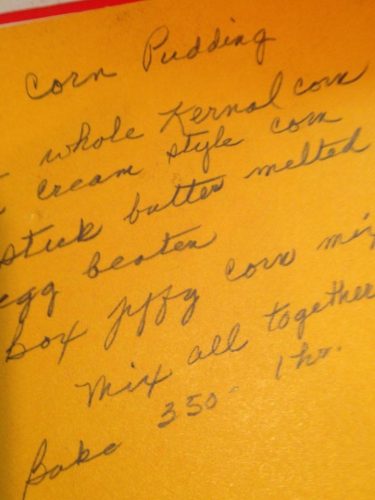 Corn Pudding
whole Kernal corn
cream style corn
stick butter melted
egg beaten
Box Jiffy corn mix
Mix all together
Bake 350° 1 hr.